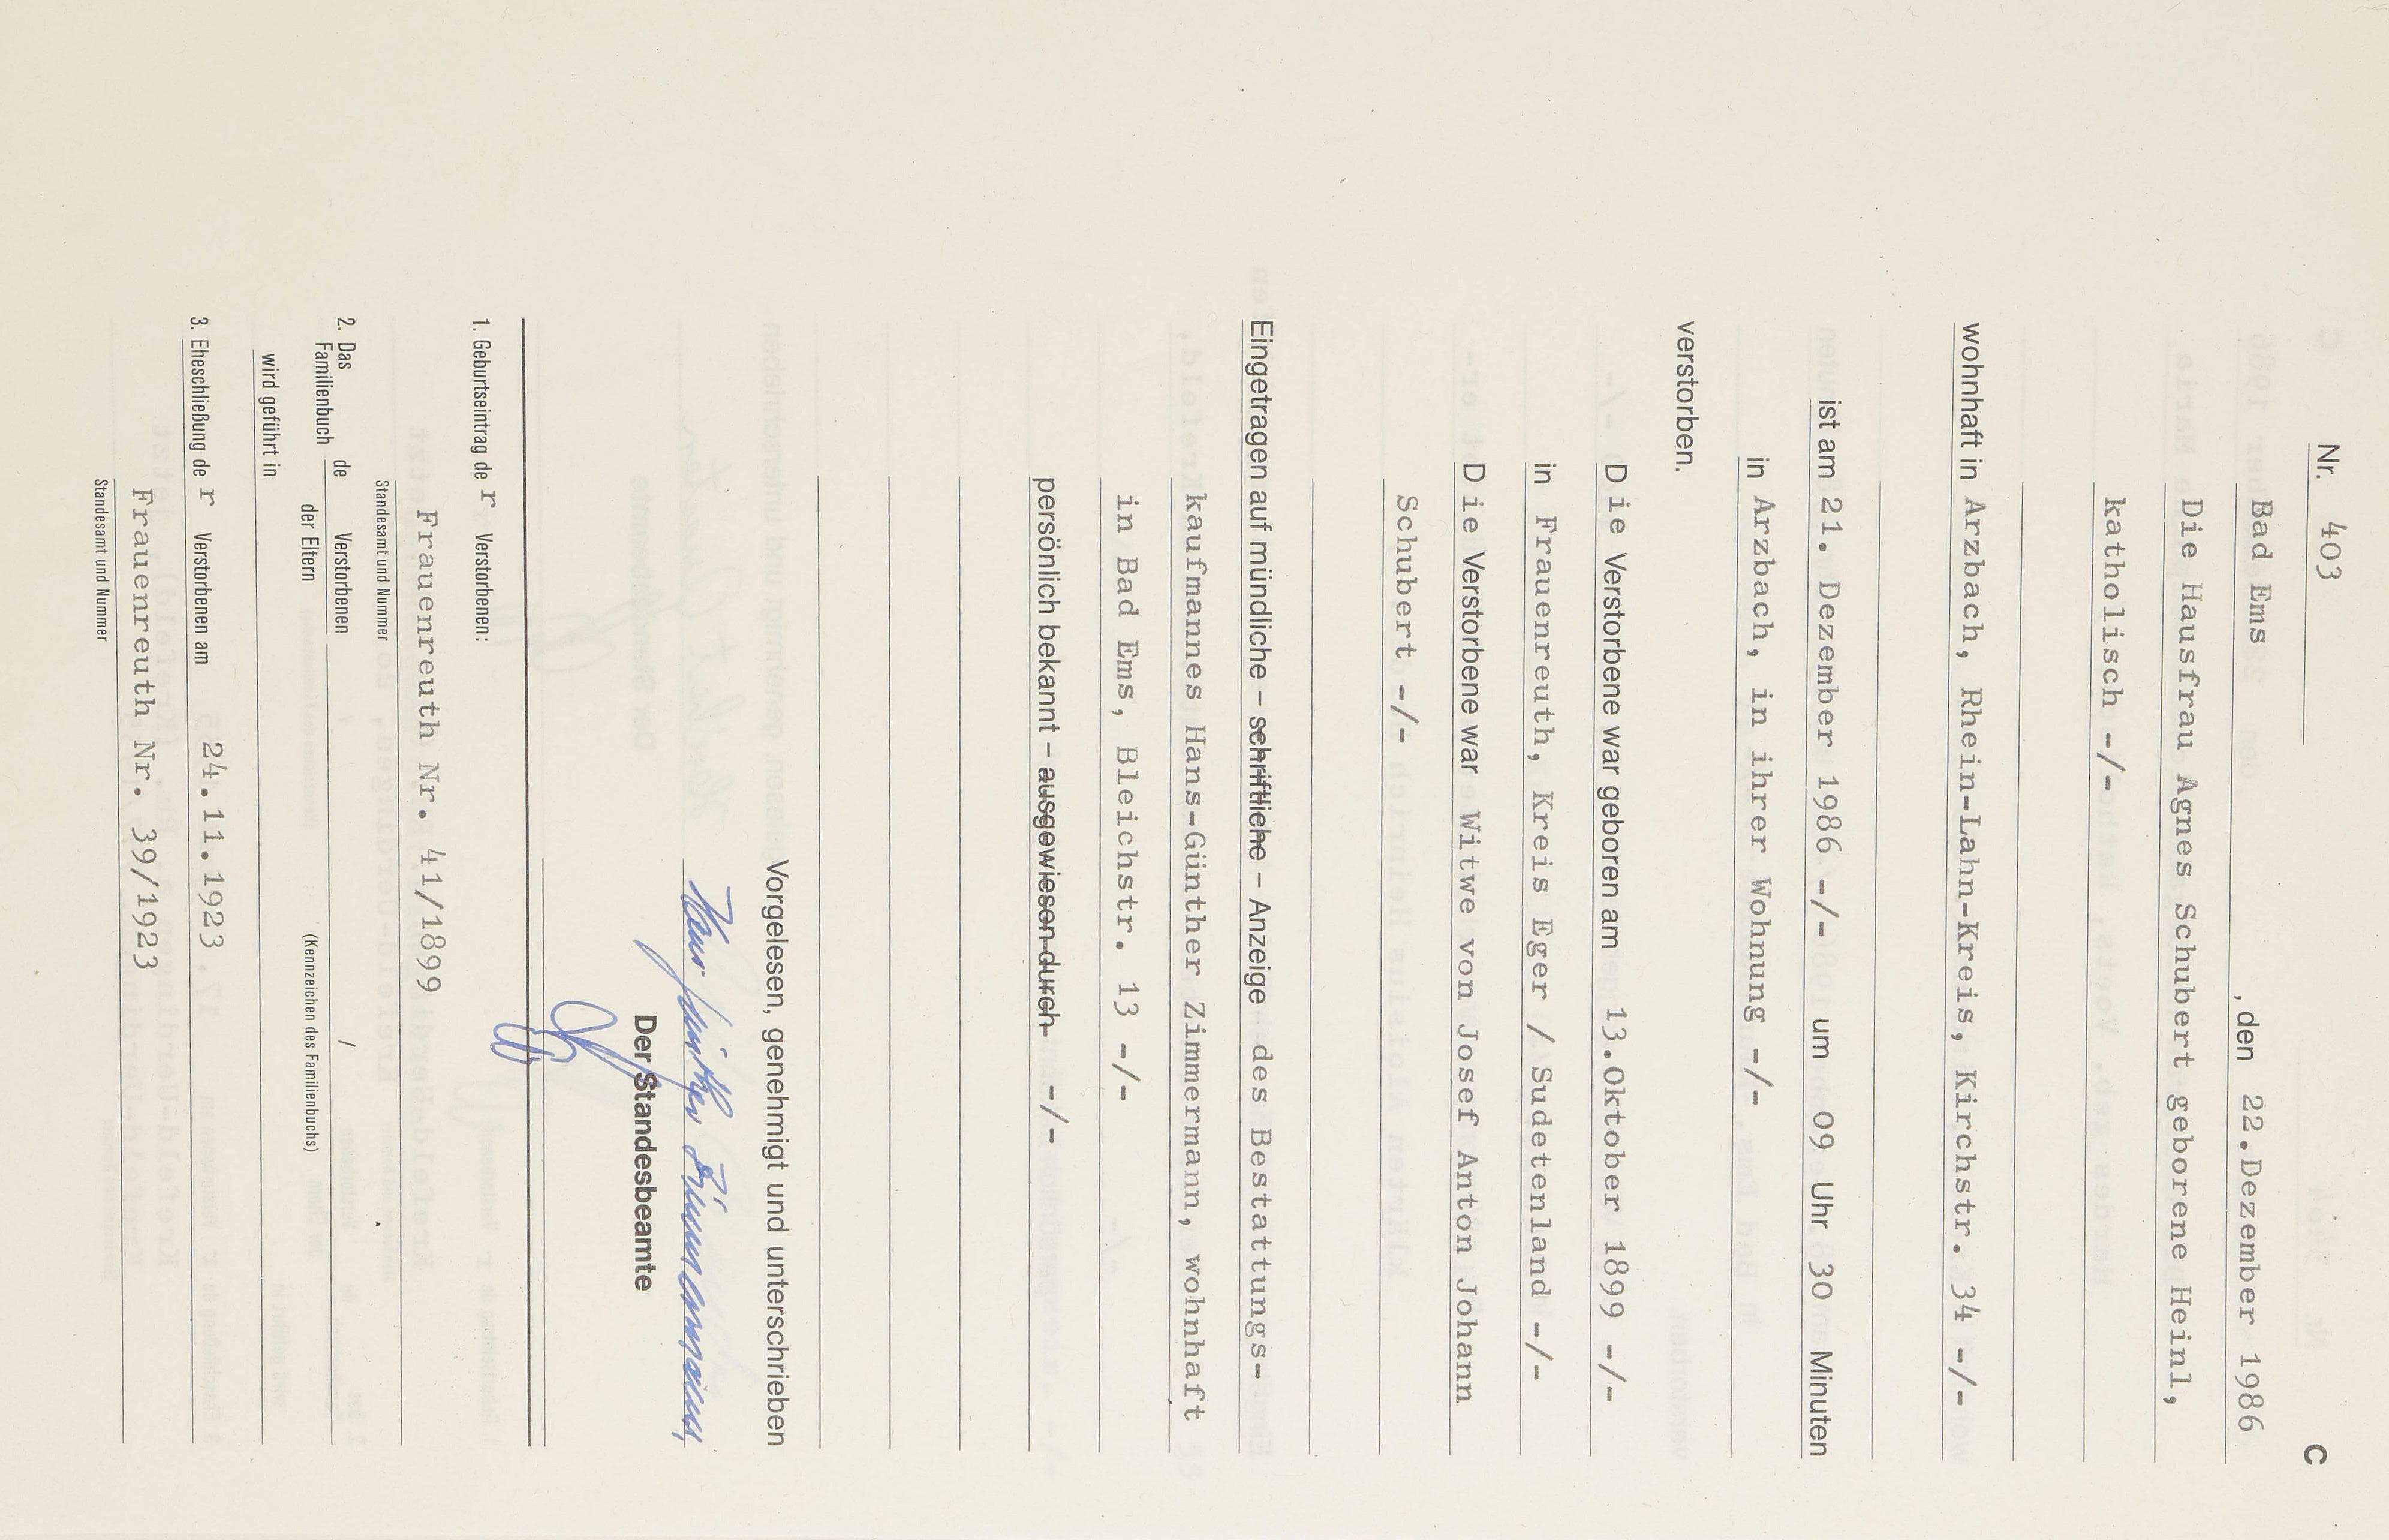 C
Nr. 403
Bad Ems, den 22.Dezember 1986
Die Hausfrau Agnes Schubert geborene Heinl,
katholisch -/-
wohnhaft in Arzbach, Rhein-Lahn-Kreis, Kirchstr. 34 -/-
ist am 21. Dezember 1986 -/- um 09 Uhr 30 Minuten
in Arzbach, in ihrer Wohnung -/-
verstorben.
Die Verstorbene war geboren am 13.Oktober 1899 -/-
in Frauenreuth, Kreis Eger / Sudetenland -/-
Die Verstorbene war Witwe von Josef Anton Johann
Schubert -/-
Eingetragen auf mündliche – schriftliche – Anzeige des Bestattungs-
kaufmannes Hans-Günther Zimmermann, wohnhaft
in Bad Ems, Bleichstr. 13 -/-
persönlich bekannt – ausgewiesen durch -/-
Vorgelesen, genehmigt und unterschrieben
Hans Günther Zimmermann
Der Standesbeamte
1. Geburtseintrag der Verstorbenen:
Frauenreuth Nr. 41/1899
Standesamt und Nummer
2. Das Familienbuch de Verstorbenen / der Eltern /
(Kennzeichen des Familienbuchs)
wird geführt in
3. Eheschließung der Verstorbenen am 24.11.1923
Frauenreuth Nr. 39/1923
Standesamt und Nummer